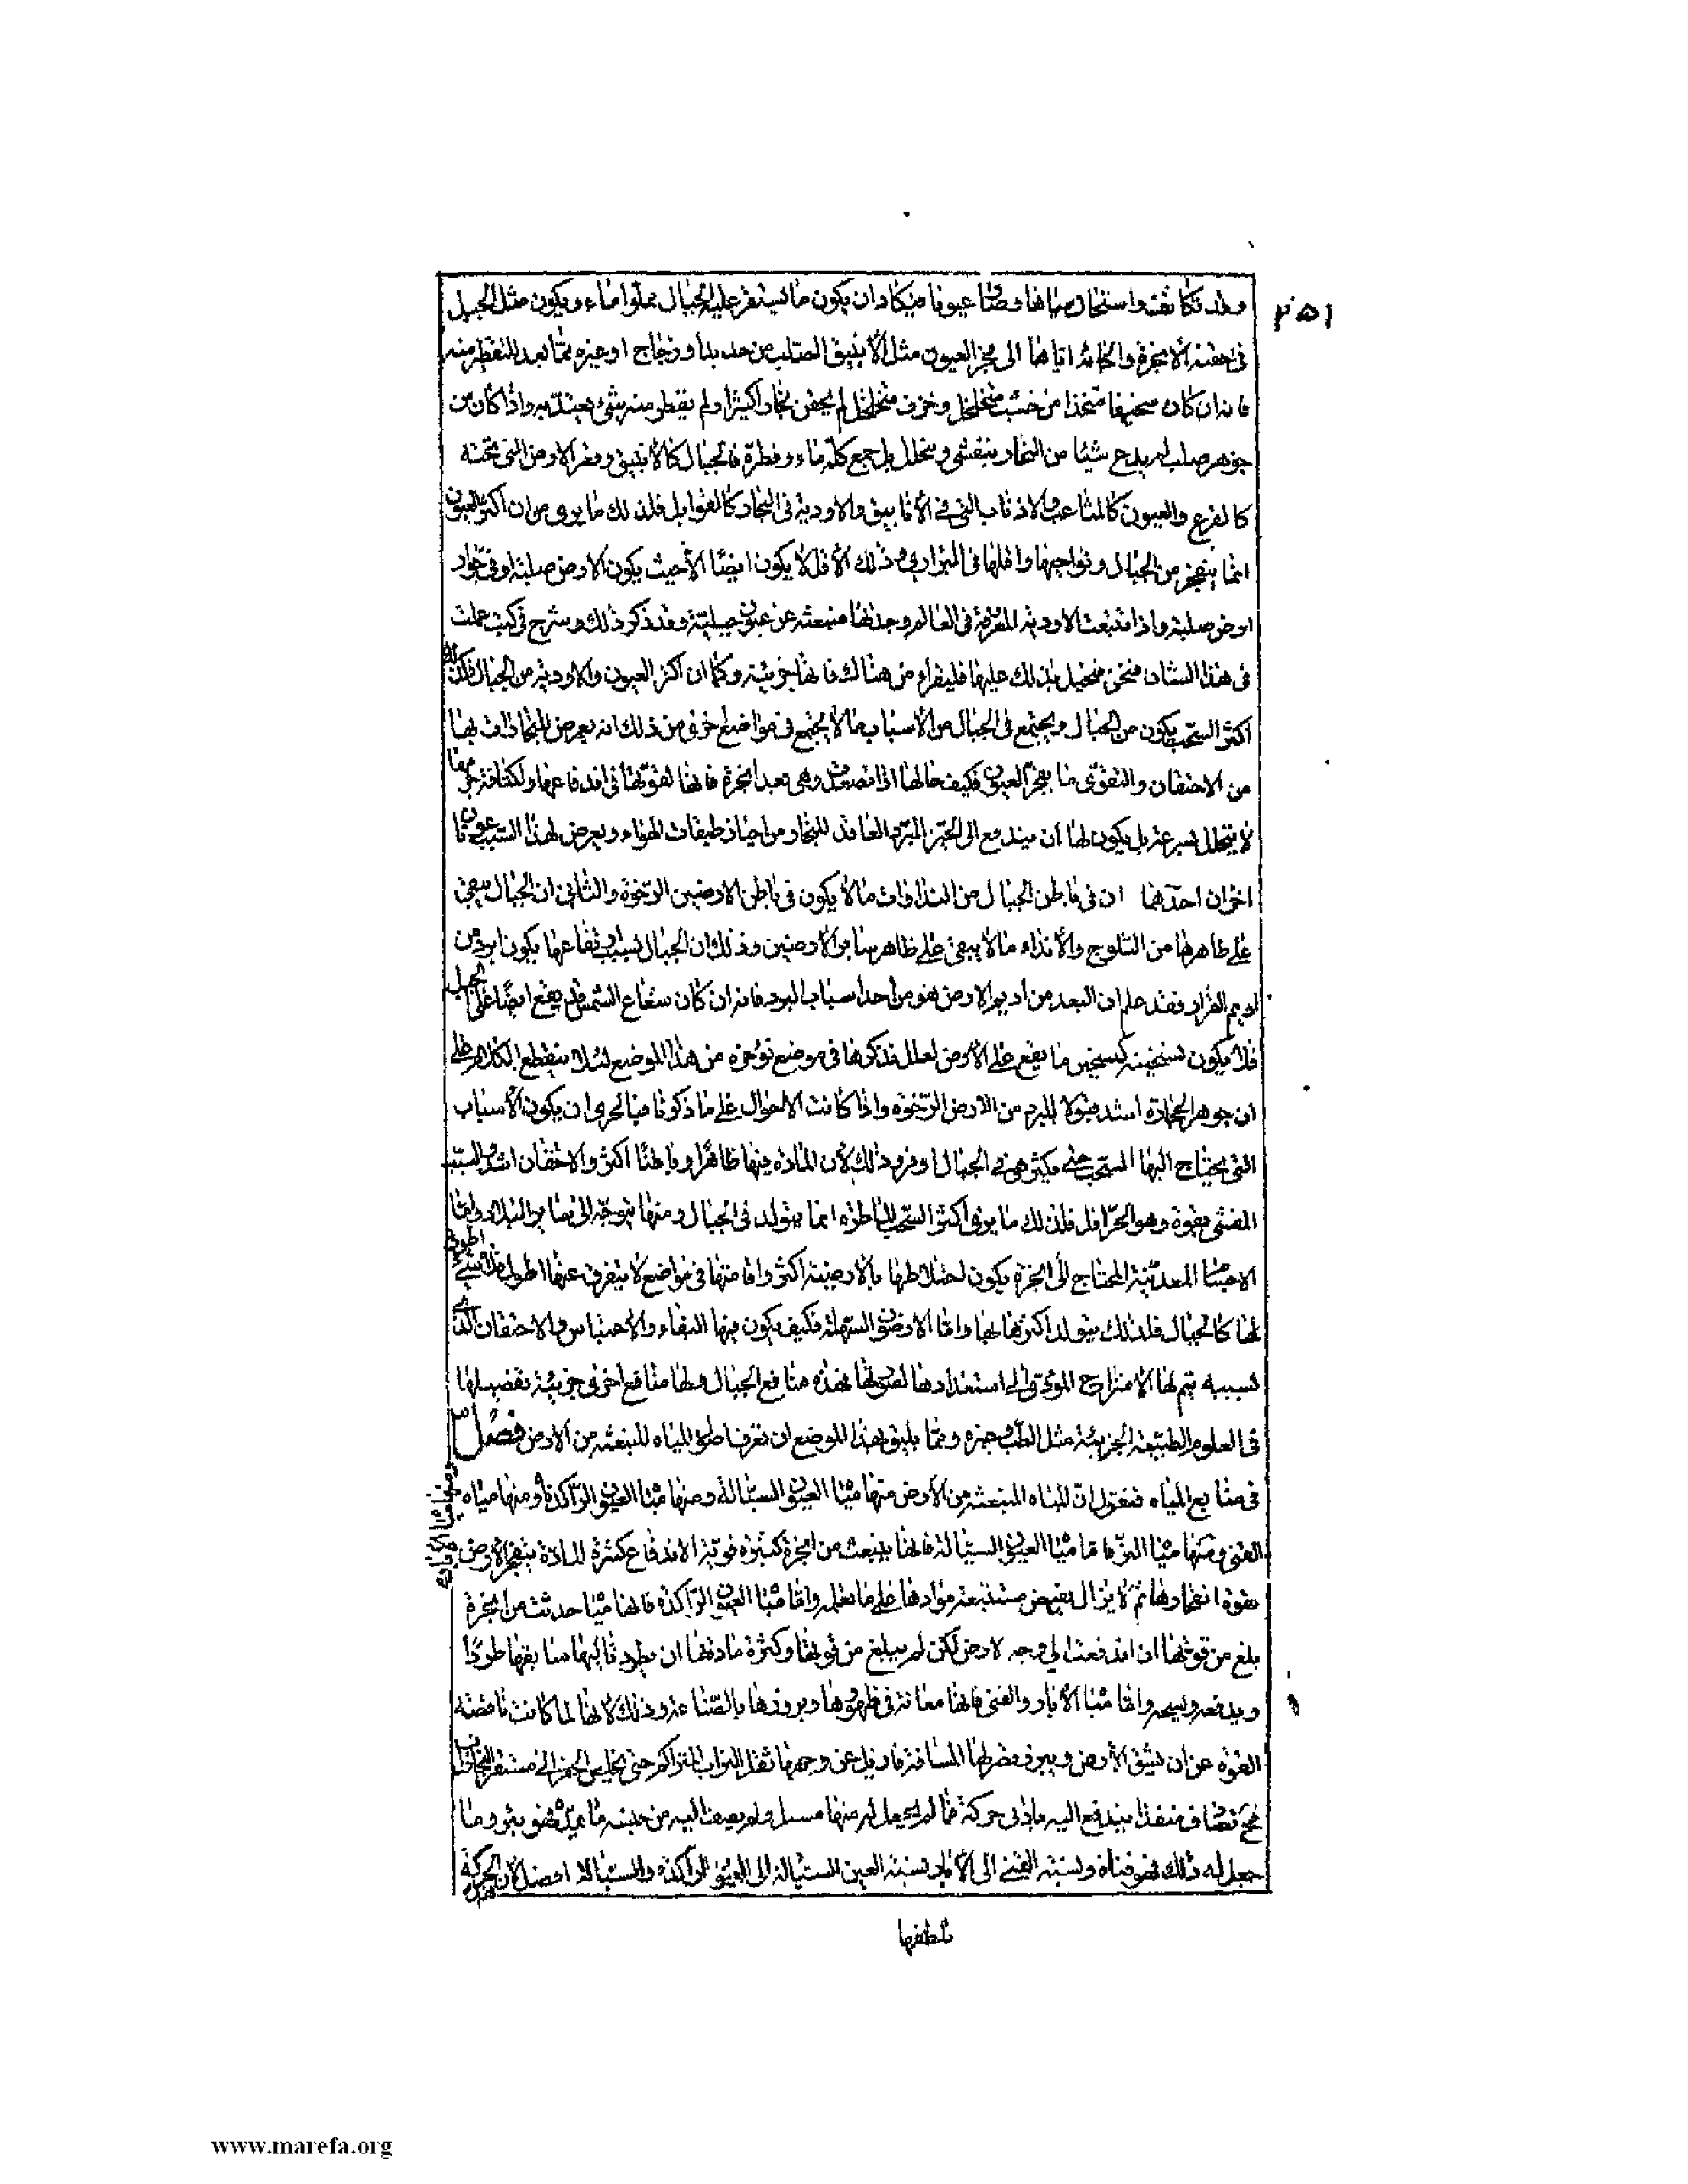 ٢٥١
وقد تكاثفت واستحال مياها وصار عيونا فيكاد ان يكون ما يستقر عليه الجبال مملوا ماء ويكون مثل الجبل
في حقنه الابخرة والجائه اياها الى فجر العيون مثل الانبيق الصلب من حديد او زجاج او غيره مما يعد للتقطير منه
فانه ان كان سخيفا متخذا من خشب متخلخل وخزف متخلخل لم يحقن بخارا كثيرا ولم يقطر منه شيء يعتد به واذا كان من
جوهر صلب لم يدع شيئا من البخار يتفشى ويتحلل بل جمع كله ماء وقطره فالجبال كالانبيق وقعر الارض التي تحته
كالقرع والعيون كالمثاعب والاذناب التي في الانابيق والاودية في البخار كالقوابل فلذلك ما يرى من ان اكثر العيون
انما ينفجر من الجبال ونواحيها واقلها في البراري وذلك الاقل لا يكون ايضا الا حيث يكون الارض صلبة او في جوار
ارض صلبة واذا تتبعت الاودية المعروفة في العالم وجدتها منبعثة عن عيون جبلية وقد ذكر ذلك وشرح في كتب عملت
في هذا الشان فنحن نحيل بذلك عليها فليقراء من هنالك فانها جزئية وكما ان اكثر العيون والاودية من الجبال فكذلك
اكثر السحب يكون من الجبال ويجتمع في الجبال من الاسباب ما لا يجتمع في مواضع اخرى من ذلك انه يعرض للبخارات بها
من الاحتقان والتقوى ما يفجر العيون فكيف حالها اذا تصعدت وهي بعد ابخرة فانها لقوتها في اندفاعها ولكثافة جرمها
لا يتحلل بسرعة بل يكون لها ان يندفع الى الحيز المبرد العاقد للبخار من احياز طبقات الهواء ويعرض لهذا السبب عونان
اخران احدهما ان في باطن الجبال من النداوات ما لا يكون في باطن الارضين الرخوة والثاني ان الجبال يبقى
على ظاهرها من الثلوج والانداء ما لا يبقى على ظاهر ساير الارضين وذلك ان الجبال بسبب ارتفاعها يكون ابرد من
اديم القرار وقد علم ان البعد من اديم الارض هو من احد اسباب البرد فانه ان كان شعاع الشمس قد يقع ايضا على الجبل
فلا يكون تسخينه كتسخين ما يقع على الارض لعلل نذكرها في موضع نؤخره من هذا الموضع لئلا ينقطع الكلام على
ان جوهر الحجارة اشد قبولا للبرد من الارض الرخوة واذا كانت الاحوال على ما ذكرنا فبالحرى ان يكون الاسباب
التي يحتاج اليها السحب حتى يكثر هي في الجبال اوفر وذلك لان المادة فيها ظاهرا وباطنا اكثر والاحتقان اشد والسبب
المفشى بقوة وهو الحر اقل فلذلك ما يرى اكثر السحب الماطرة انما يتولد في الجبال ومنها يتوجه الى ساير البلاد واما
الاجسام المعدنية المحتاج الى ابخرة يكون اختلاطها بالارضية اكثر واقامتها في مواضع لا يتفرق عنها اطول فلا شيء
لها كالجبال فلذلك يتولد اكثرها فيها واما الارضون السهلة فكيف يكون فيها البقاء والاحتباس والاحتقان الذي
بسببه يتم لها الامتزاج المؤدى الى استعدادها لصورتها فهذه منافع الجبال ولها منافع اخرى جزئية تفصيلها
في العلوم الطبيعة الجزئية مثل الطب وغيره ومما يليق بهذا الموضع ان نعرف احوال المياه المنبعثة من الارض فصل
في منابع المياه فنقول ان المياه المنبعثة من الارض منها مياه العيون السيالة ومنها مياه العيون الراكدة ومنها مياه
القنى ومنها مياه النز فاما مياه العيون السيالة فانها ينبعث من ابخرة كثيرة قوية الاندفاع كثرة المادة ينفجر الارض
بقوة انفجارها ثم لا يزال يفيض مستتبعة موادها على ما نعلمه واما مياه العيون الراكدة فانها مياه حدثت من ابخرة
بلغ من قوتها ان اندفعت الى وجه الارض لكن لم يبلغ من قوتها وكثرة مادتها ان يطرد تاليها سابقها طردا
ويدفعه ويسيحه واما مياه الابار والقنى فانها معانة في ظهورها وبروزها بالصناعة وذلك لانها لما كانت ناقصة
القوة عن ان تشق الارض ويبرز قصر لها المسافة فازيل عن وجهها ثقل التراب المتراكم حتى
تصادف منفذا يندفع اليه بادنى حركة فما لم يجعل له منها مسيل ولم يضف اليه من جنبه ما يمده فهو بئر وما
جعل له ذلك فهو قناة ونسبة القنى الى الابار نسبة العين السيالة الى العيون الراكدة والسيالة افضل لان الحركة
تلطفها
www.marefa.org